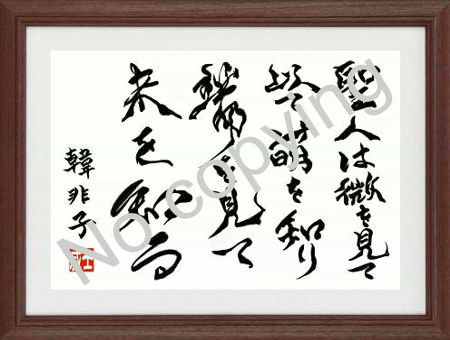 聖人は微を見て
以て萌を知り
端を見て
末を知る
韓非子
No copying